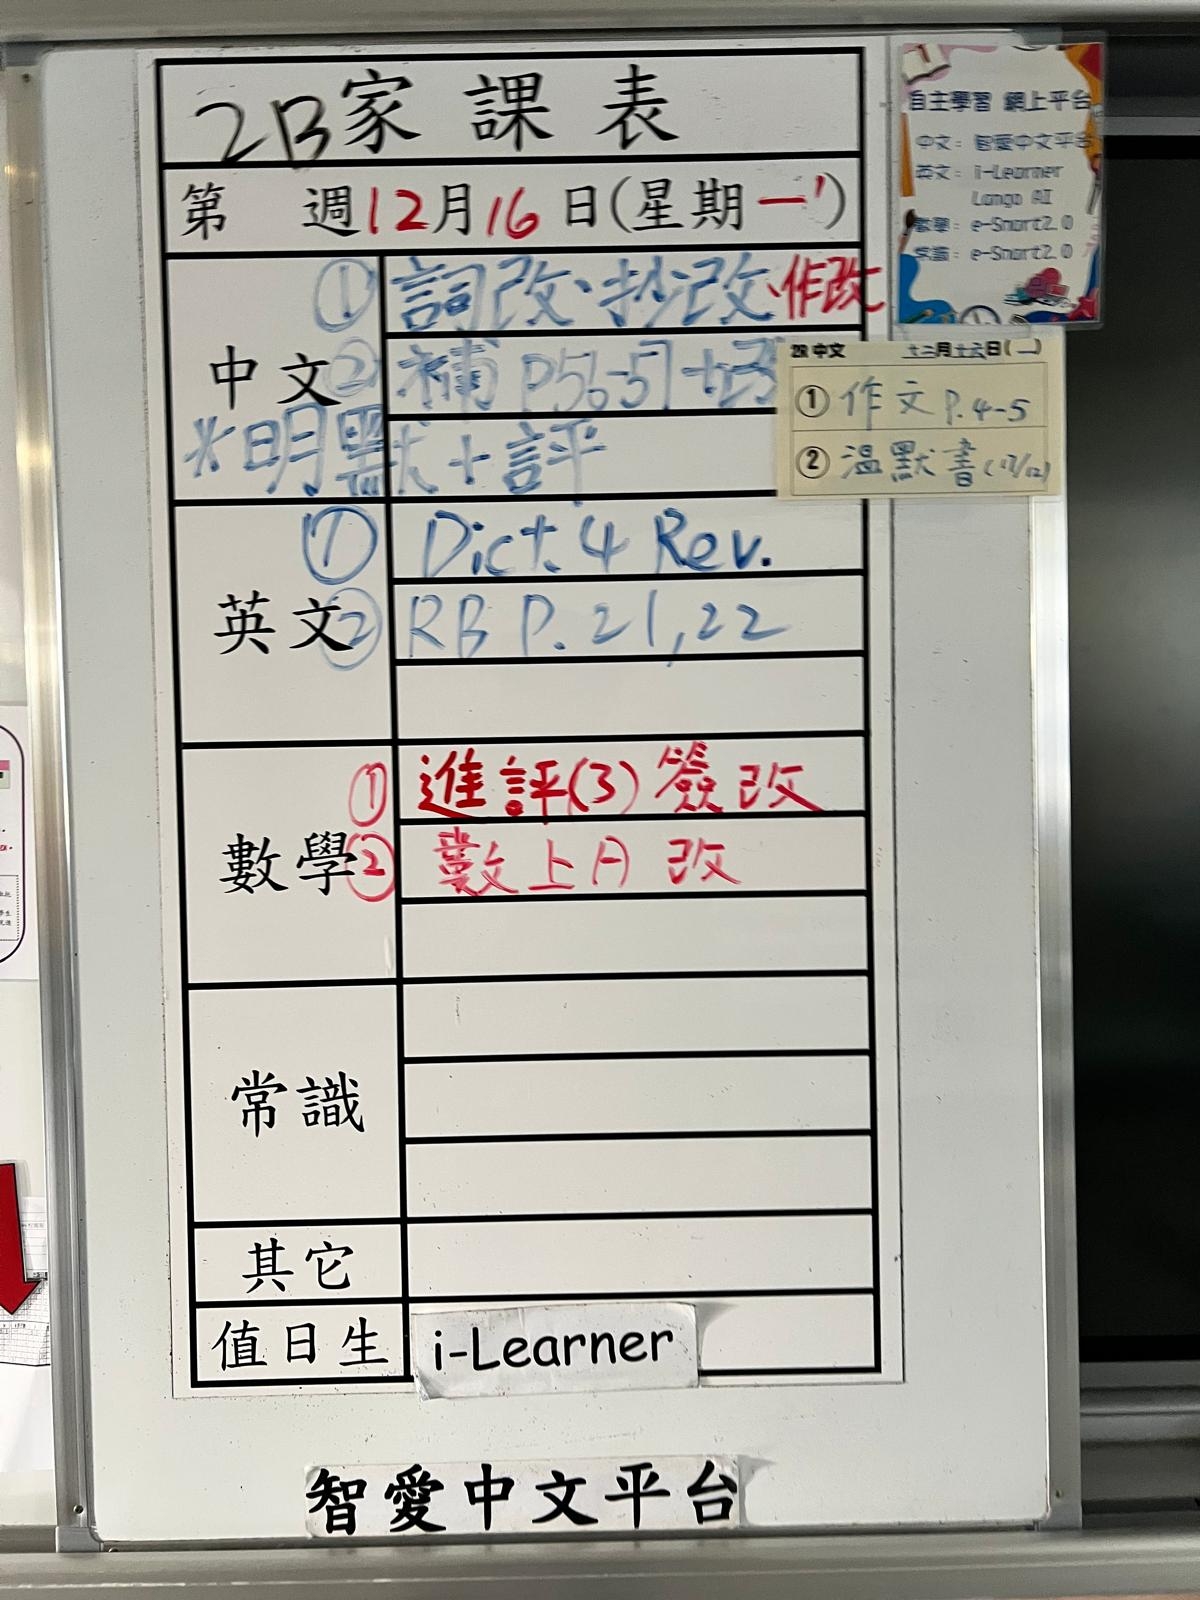 2B家課表
第 週12月16日(星期一)
中文
① 詞改、抄改、作改
② 補 P56-57+改
*明默+評
英文
① Dict. 4 Rev.
② RB P. 21,22
數學
① 進評(3) 簽改
② 數上A 改
常識
其它
值日生
i-Learner
智愛中文平台
自主學習 網上平台
中文：智愛中文平台
英文：i-Learner
Lango AI
數學：e-Smart2.0
常識：e-Smart2.0
2B 中文 十二月十六日(一)
① 作文 P. 4-5
② 溫默書(17/12)